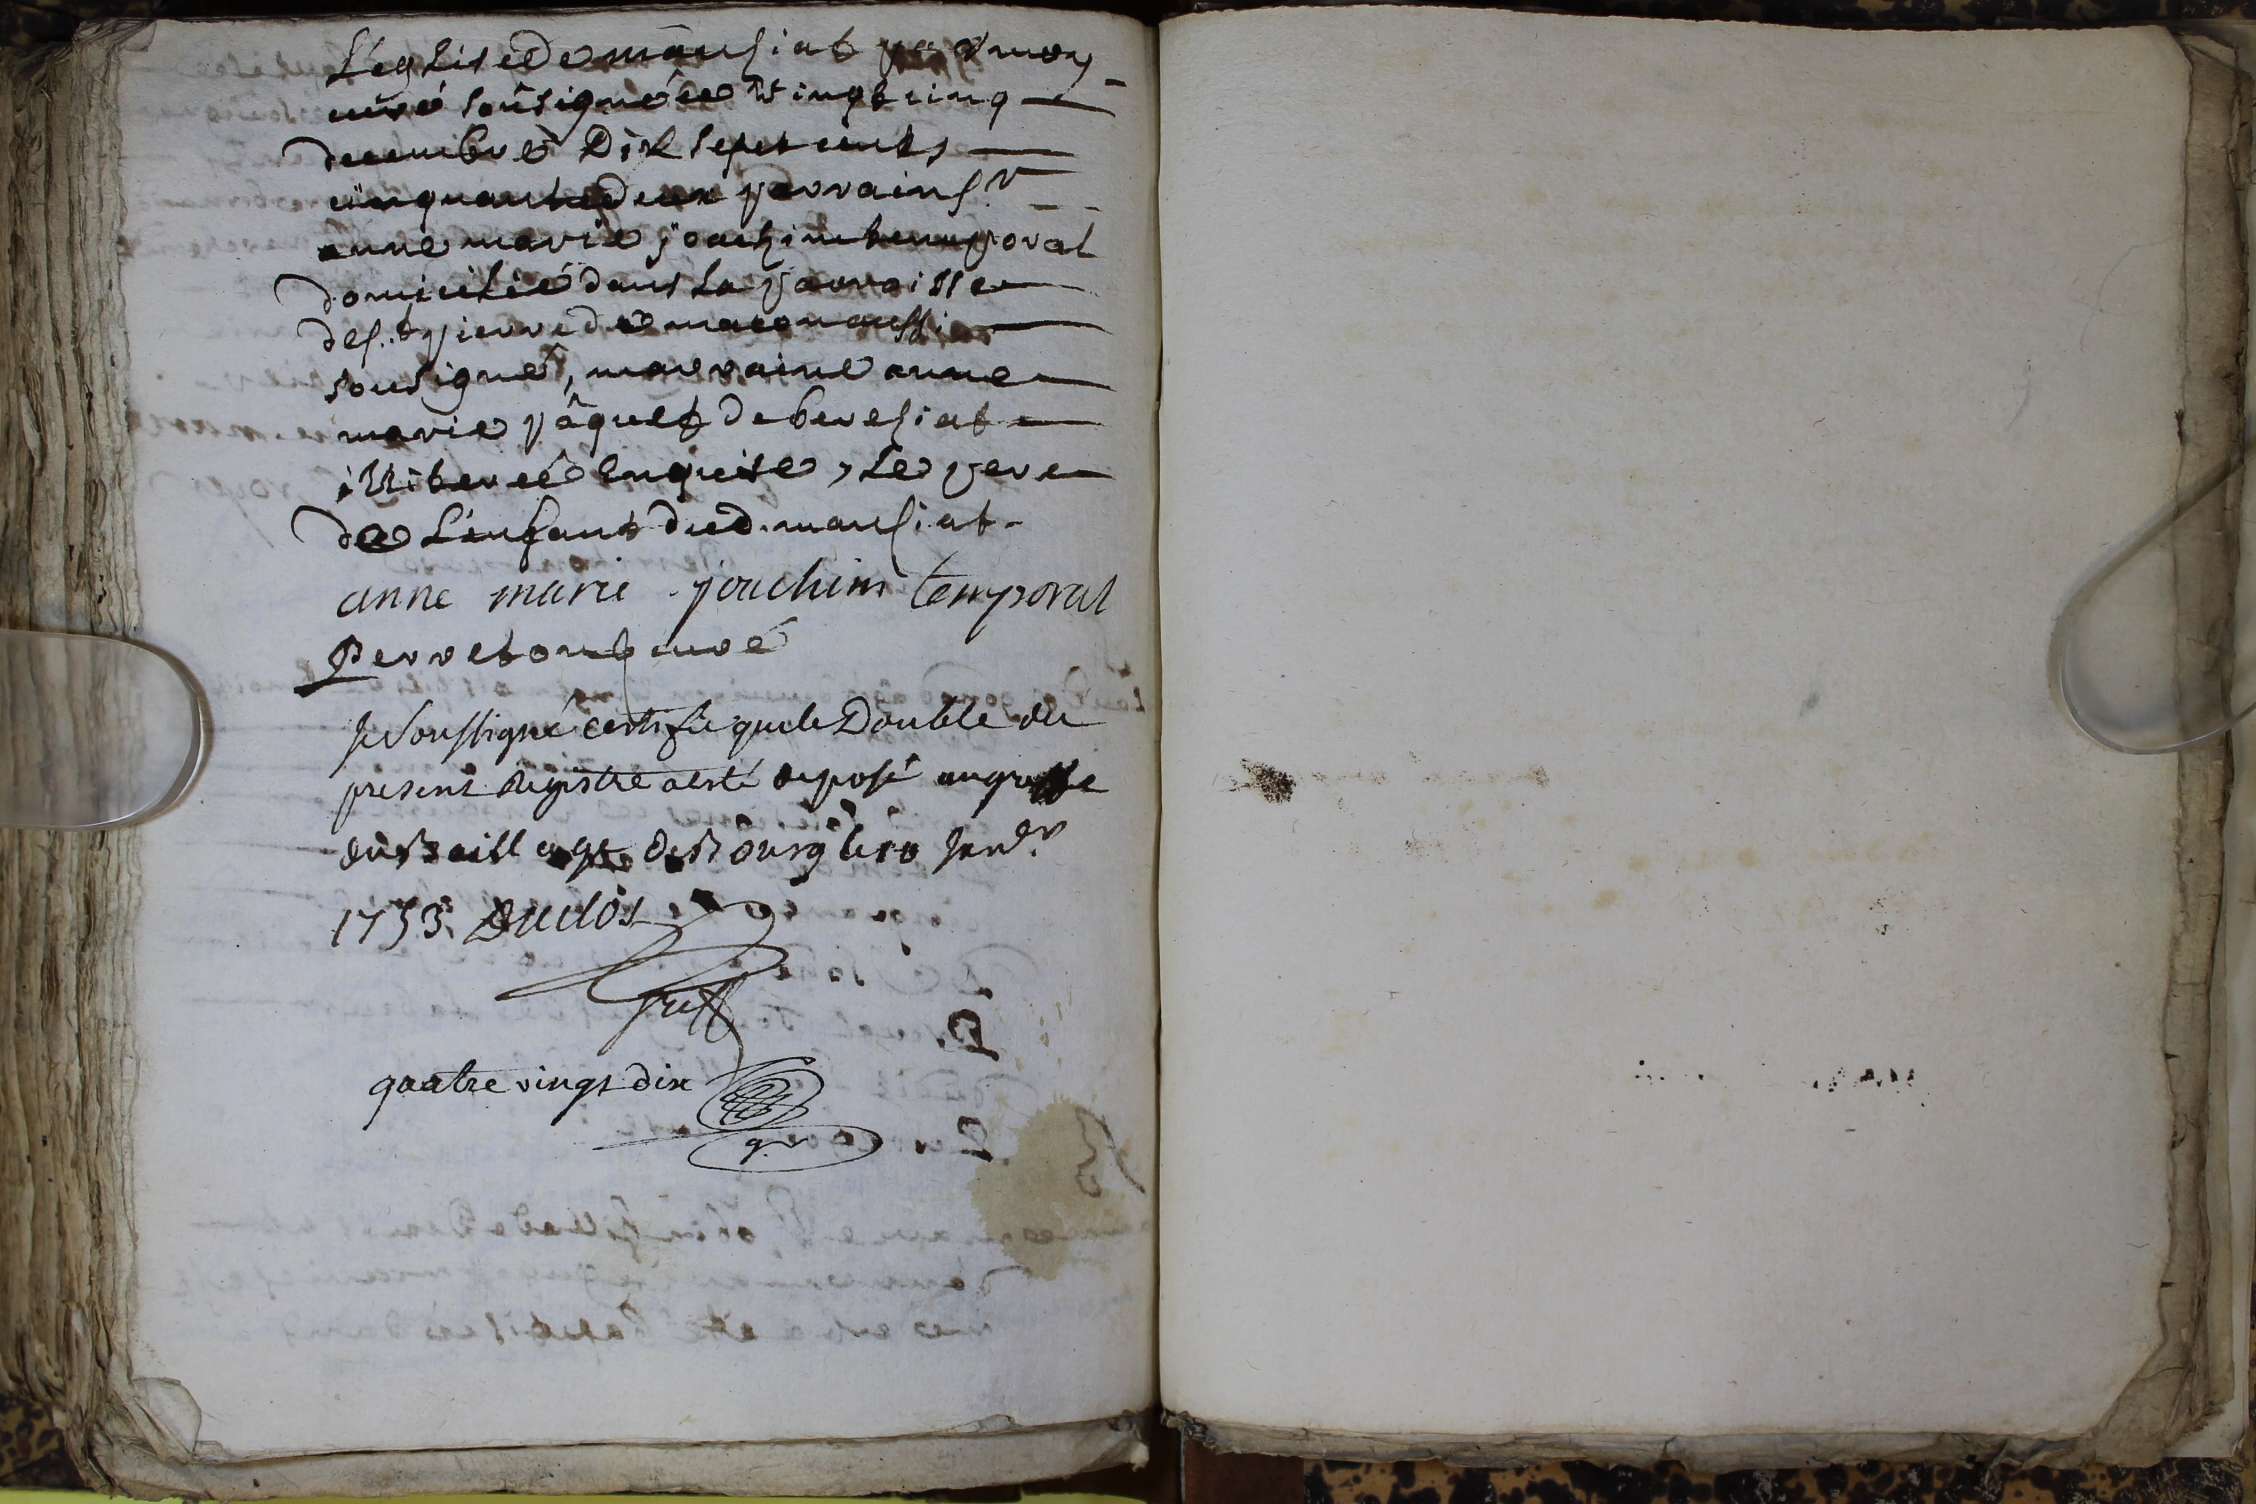 L'eglise de mansiat par moy
curé sousigné le vingt cinq
decembre Dix sept cents
cinquante deux parrain s.r
anne marie joachim temporal
domicilié dans la parroisse
de s.t pierre de macon aussi
sousigné, marraine anne
marie pâquet de bevesiat
illiterée enquise, le pere
de L'enfant dud. mansiat
anne marie joachim temporal
Perret curé
Je soussigné certifie que le Double du
present Registre a esté deposé au greffe
du Baillage de Bourg le 10 Janv.r
1753. Duclos
greff
quatre vingt dix